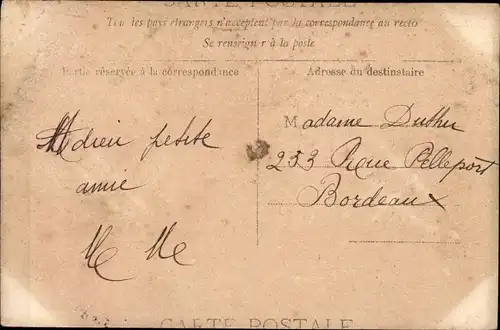 CARTE POSTALE
Tous les pays étrangers n'acceptent pas la correspondance au recto
Se renseigner à la poste
Partie réservée à la correspondance
Adresse du destinataire
Adieu petite
amie
M M
Madame Duther
253 Rue Pelleport
Bordeaux
CARTE POSTALE